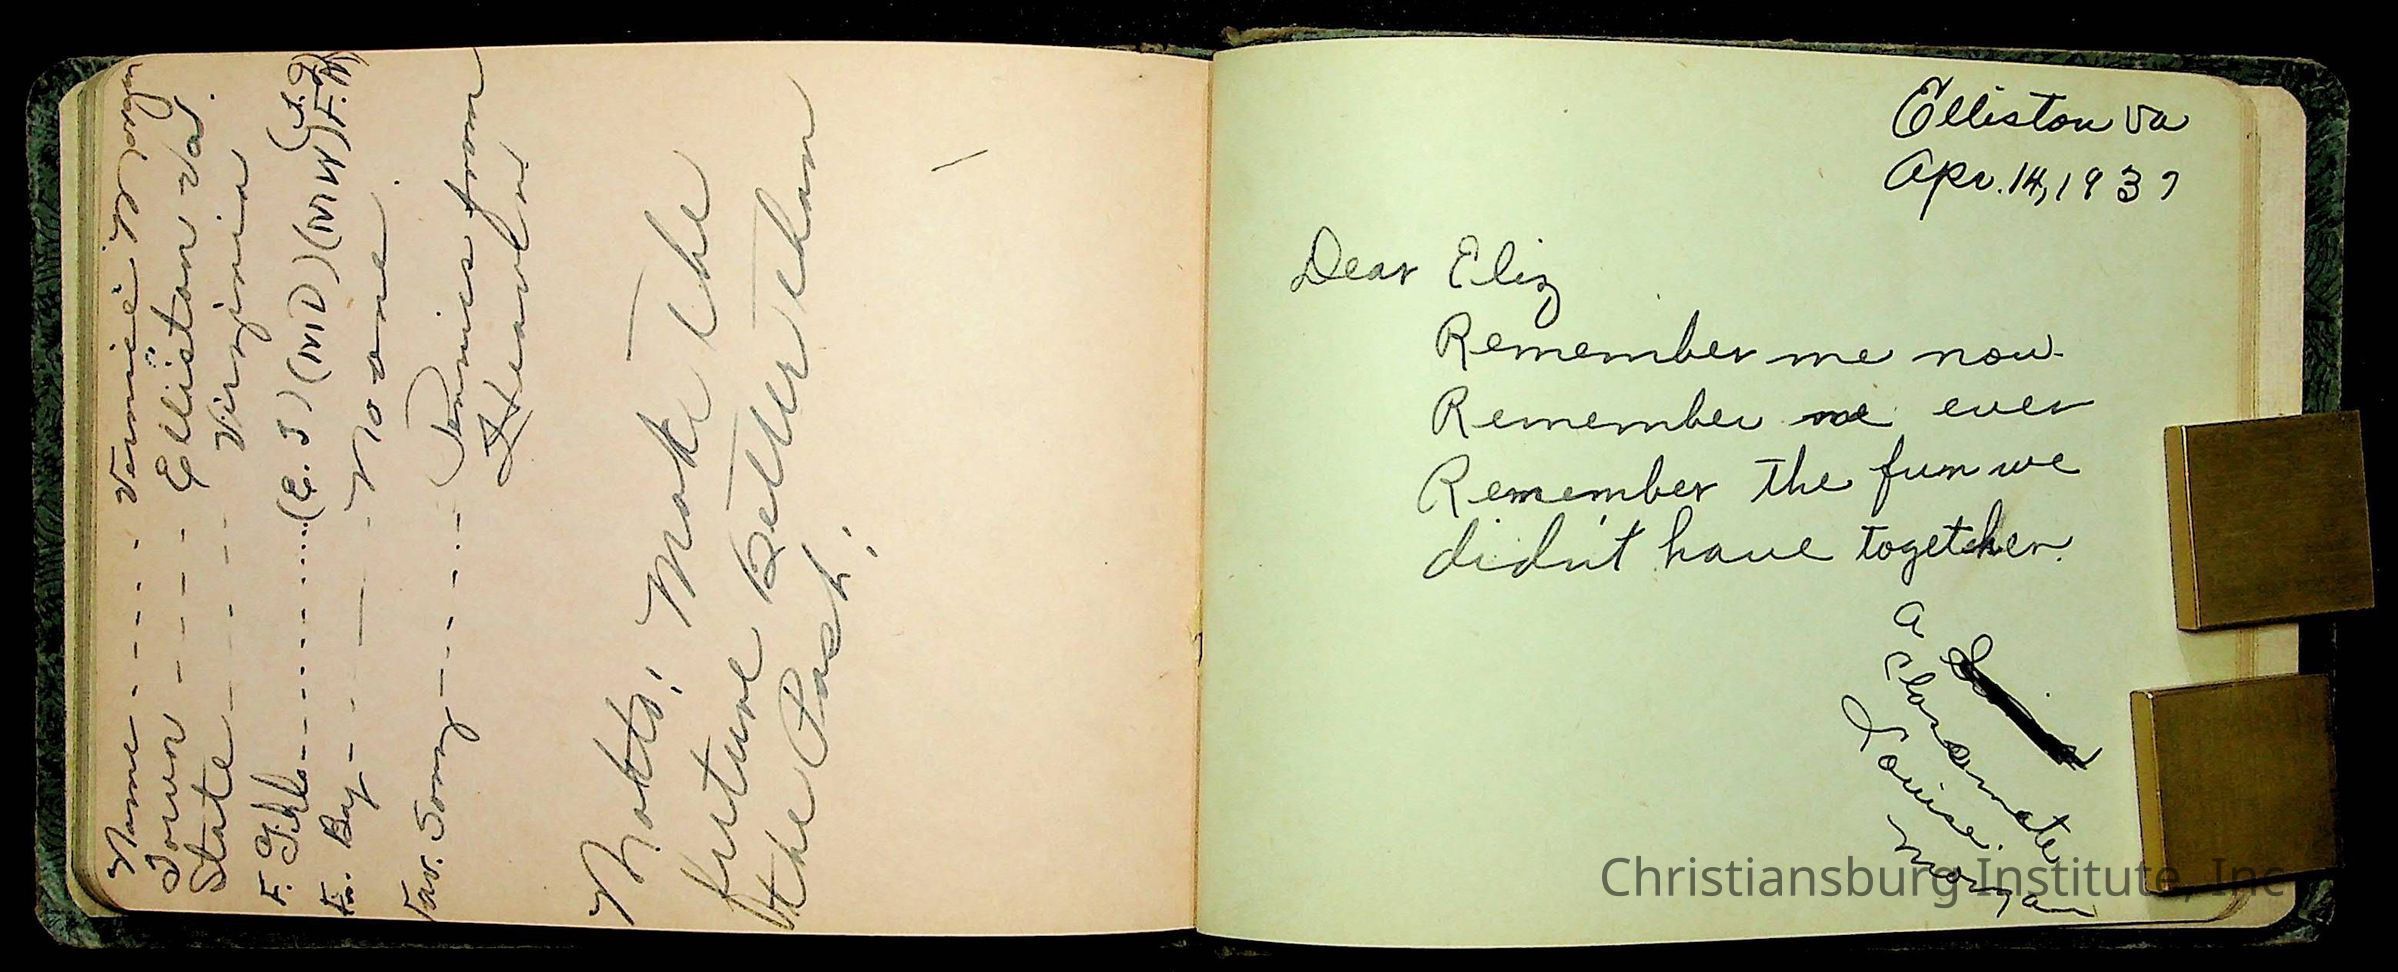 Name - - - - - - Vernice W Morgan
Town - - - - - Elliston Va.
State - - - - - Virginia
F. Girls - - - - - - (E. J) (M D) (M W) F. M)
(J. J)
Fav. Boy - - - - No one.
Fav. Song - - - - - Pennies from
Heaven
Motto: Make the
future better than
the Past.
Elliston Va
Apr. 14, 1937
Dear Eliz
Remember me now
Remember me ever
Remember the fun we
didn't have together.
a
Classmate
Louise
Morgan
Christiansburg Institute, Inc